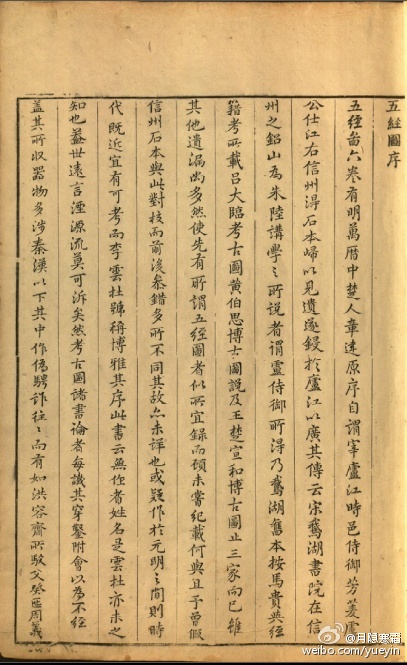 五經圖序
五經啚六卷有明萬曆中楚人章達原序自謂宰廬江時邑侍御芳菱盧
公仕江右信州淂石本歸以見遺遂鋟扵廬江以廣其傳云宋鵞湖書院在信
州之鉛山為朱陸講學之所說者謂靈侍御所淂乃鵞湖舊本按馬貴與經
籍考所載吕大臨考古圖黄伯思博古圖說及王楚宣和博古圖止三家而已雖
其他遺漏尚多然使先有所謂五經圖者似所宜録而頋未甞紀載何與且予曾假
信州石本與此對校而前後叅錯多所不同其故亦未詳也或疑作扵元明之間則時
代既近宜有可考而李雲杜號稱博雅其序此書云無作者姓名是雲杜亦未之
知也葢世遠言湮源流莫可泝矣然考古圖諸書論者每譏其穿鑿附會以為不經
葢其所収器物多涉秦漢以下其中作偽騁詐往之而有如洪容齋所駁父癸匜周義
@月隐寒霜
weibo.com/yueyin